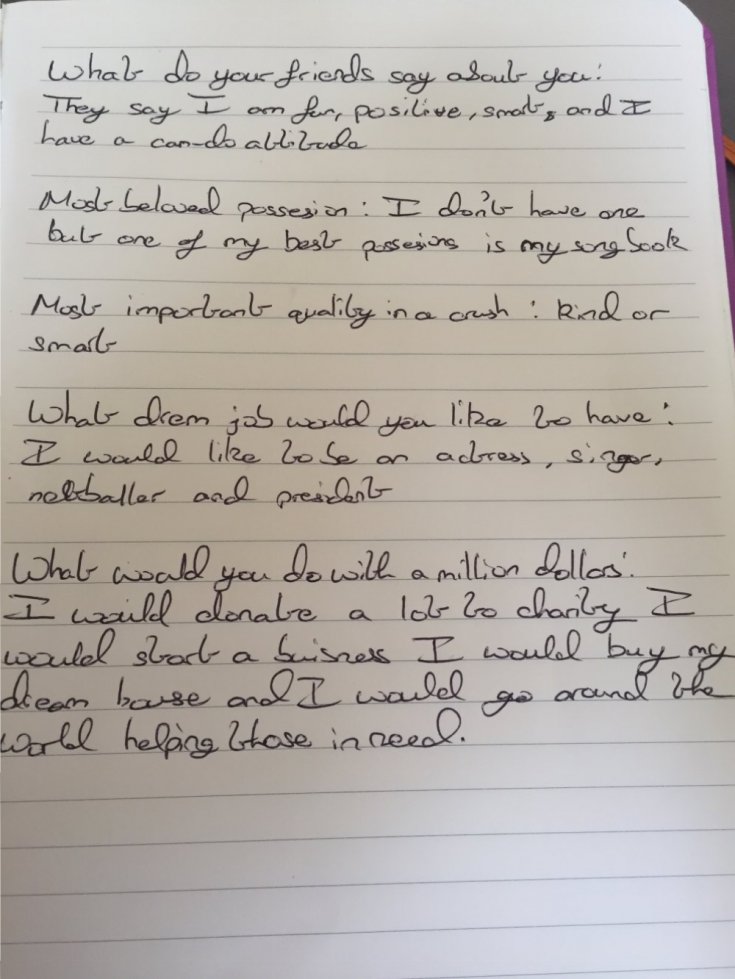 What do your friends say about you:
They say I am fun, positive, smart, and I
have a can-do attitude
Most beloved possesion : I don't have one
but one of my best possesions is my song book
Most important quality in a crush : kind or
smart
What dream job would you like to have :
I would like to be an actress, singer,
netballer and president
What would you do with a million dollars:
I would donate a lot to charity I
would start a buisness I would buy my
dream house and I would go around the
world helping those in need.